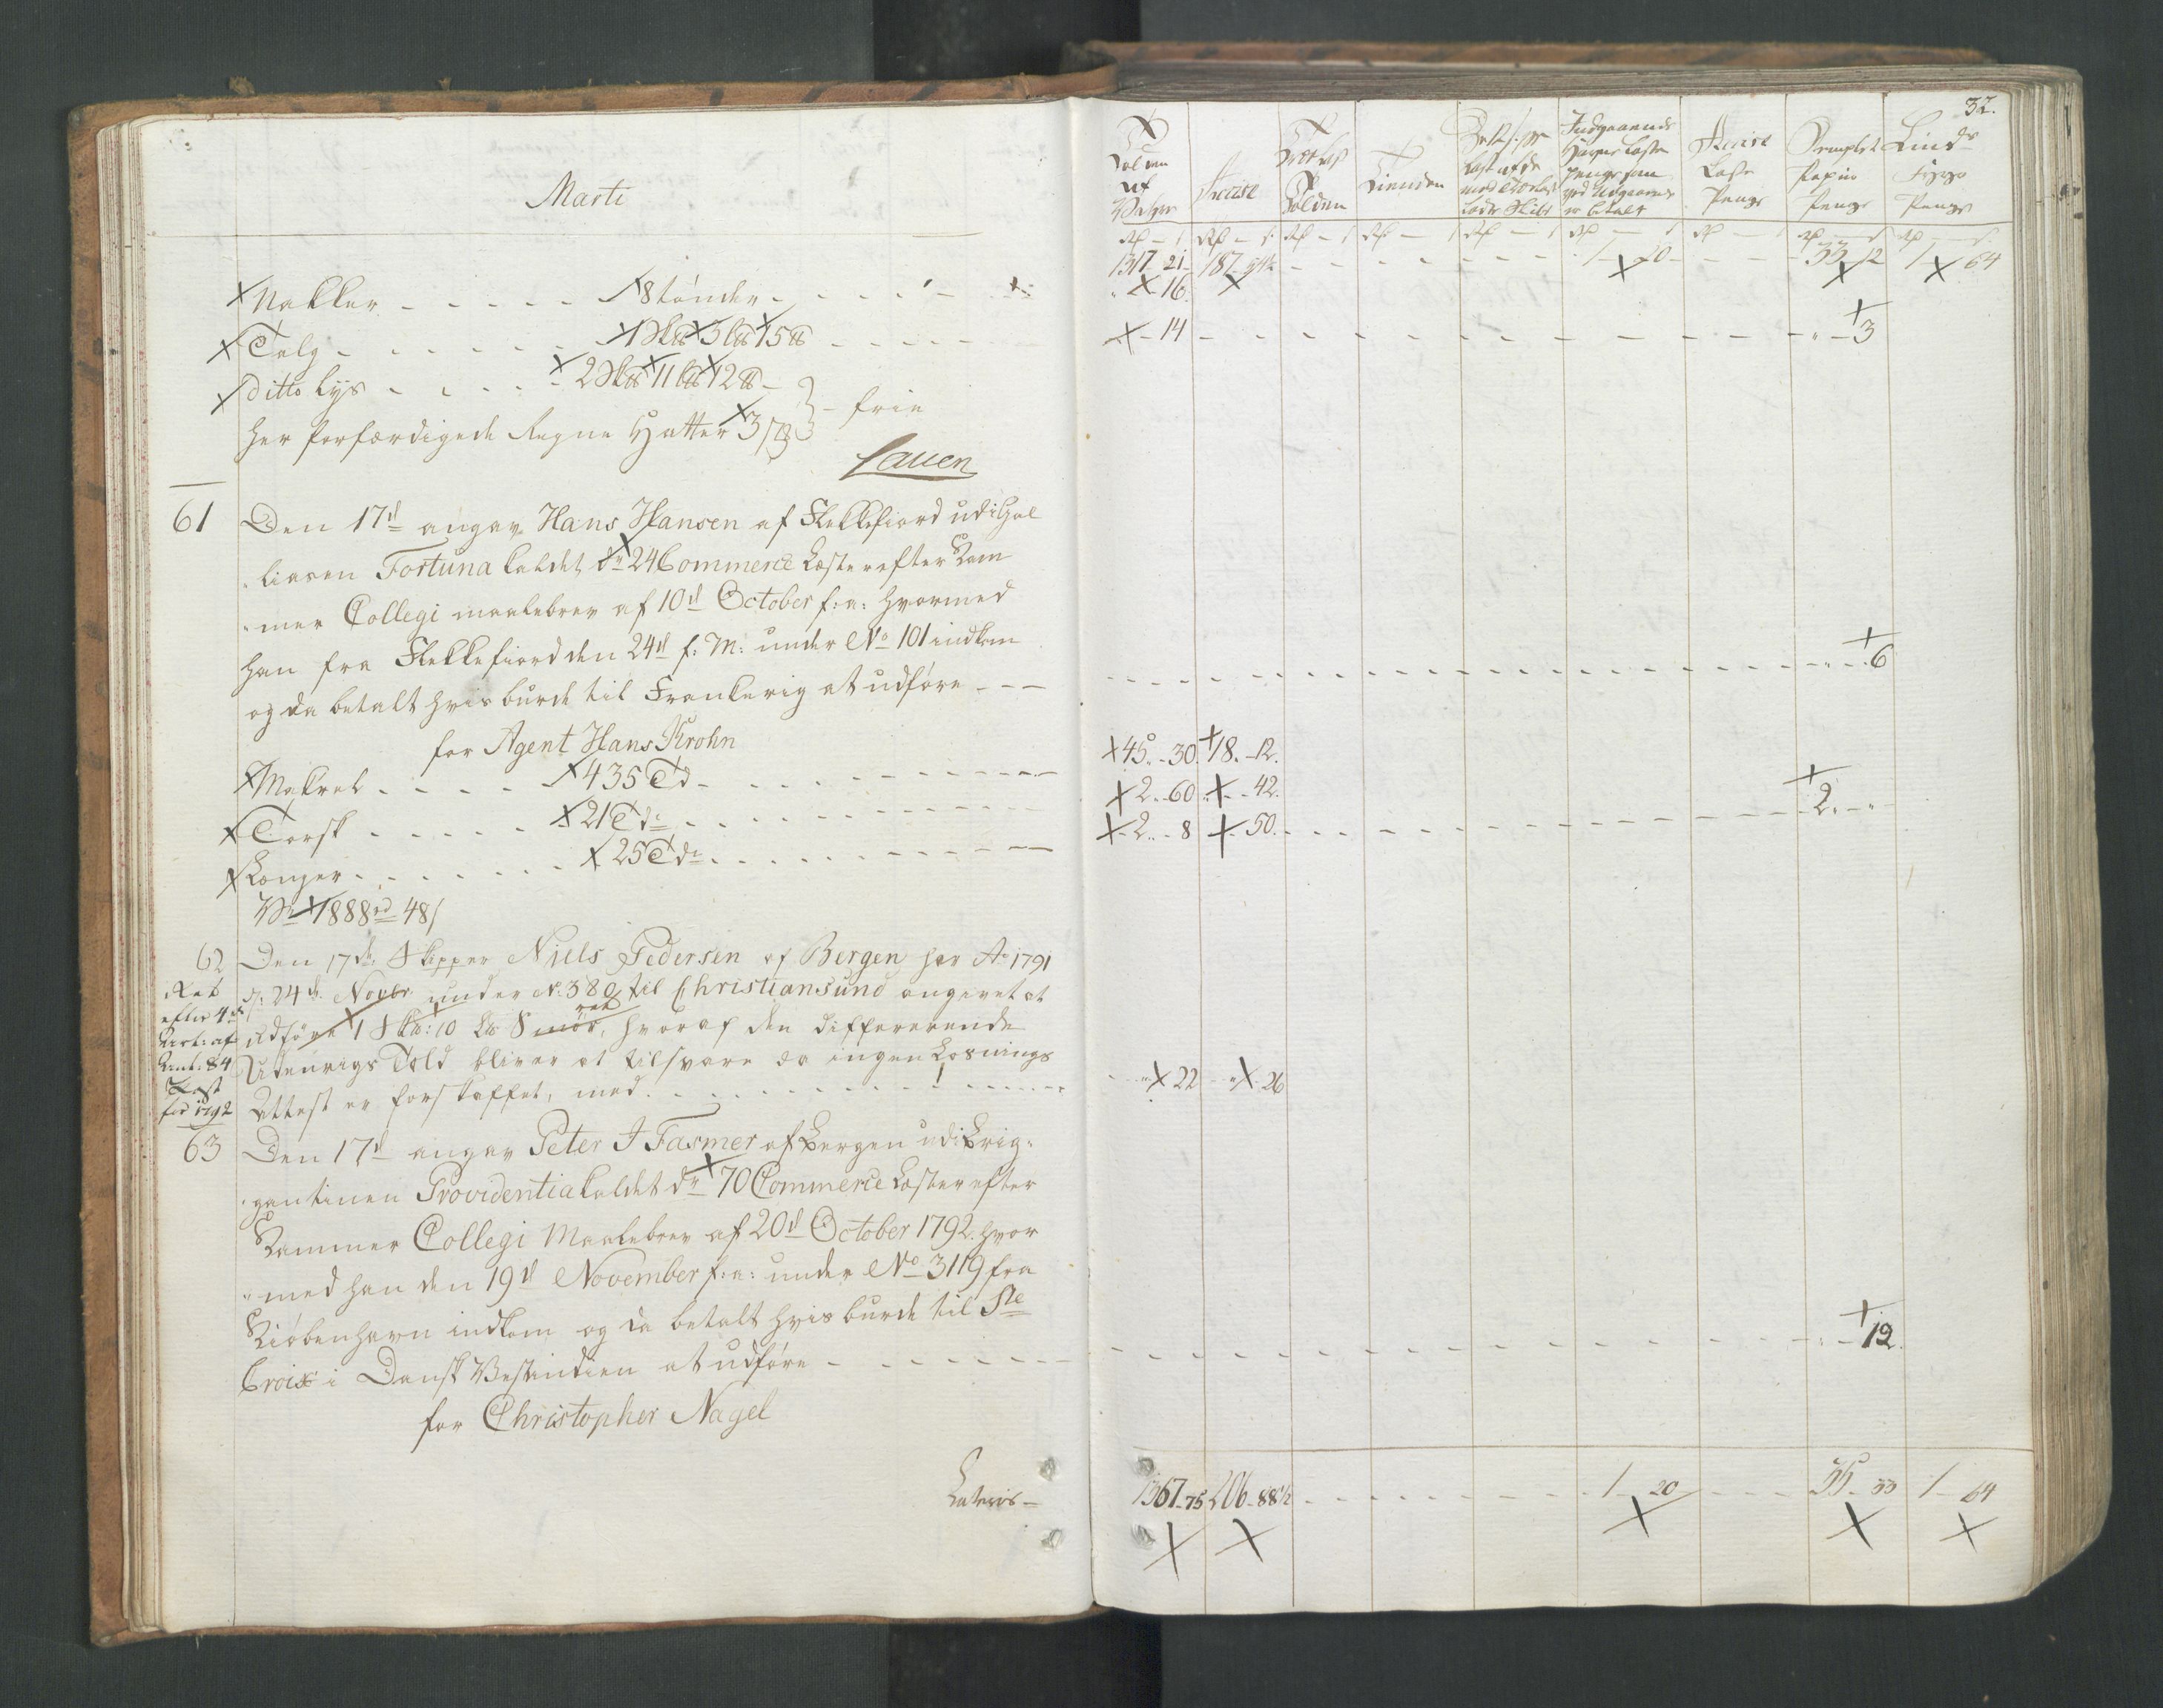 Marti
Nakker - - - - - 8 tønder - - -
Talg - - - - - 1 Sk℔ 3 L℔ 15 ℔ - - -
Ditto Lys - - - - 2 Sk℔ 11 L℔ 12 ℔ -
her forfærdigede Regne Hatter 3 } - frie
Lauen
61 Den 17d angav Hans Hansen af Flekkefiord udi Gal
liasen Fortuna kaldet dr 24 Commerce Læster efter Kam
mer Collegi maalebrev af 10d October f: a: hvormed
han fra Flekkefiord den 24d f: M: under No 101 indkom
og da betalt hvis burde til Frankerig at udføre - - -
for Agent Hans Krohn
Makrel - - - - 435 Td - - -
Torsk - - - - - 21 Tdr - - -
Længer - - - - - - 25 Tdr - - -
Vr 1888 rd 48 s
62 Den 17de Skipper Niels Pedersen af Bergen har Ao 1791
d: 24de Novbr under No 380 til Christiansund angivet at
udføre 1 Sk℔: 10 L℔ Smør, hvoraf den differerende
Udenrigs Told bliver at tilsvare da ingen Losnings
Attest er forskaffet, med - - -
efter 4de
for 1792
63 Den 17d angav Peter J Fasmer af Bergen udi Brig:
gantinen Providentia kaldet dr 70 Commerce Læster efter
Kammer Collegi Maalebrev af 20d October 1792. hvor
med han den 19d November f: a: under No 3119 fra
Kiøbenhavn indkom og da betalt hvis burde til Ste
Croix i Dansk Vestindien at udføre - - -
for Christopher Nagel
Lateris -
32.
Tolden af Vahre
Accise
Tolden
Tienden
Indgaaende Havne Læste Penge som ved Udgaaende er betalt
Accise Læste Penge
Stemplet Papiir Penge
Linds Fyrs Penge
Rd - s Rd - s Rd - s Rd - s Rd - s Rd - s Rd - s Rd - s Rd - s
1317 - 21 - 187 - 54½ - - - 1 - 20 - - - 33 - 12 1 - 64
" - 16.
- 14 - - - " - 3
- - - " - 6
45. - 30. 18. - 12.
2. - 60 " - 42.
2. - 8 - 50. - - - 2. - "
" 22 - " - 26
- - - 12.
1367 - 75 206 - 88½ - - - 1 - 20 - - - 35 - 33 1 - 64